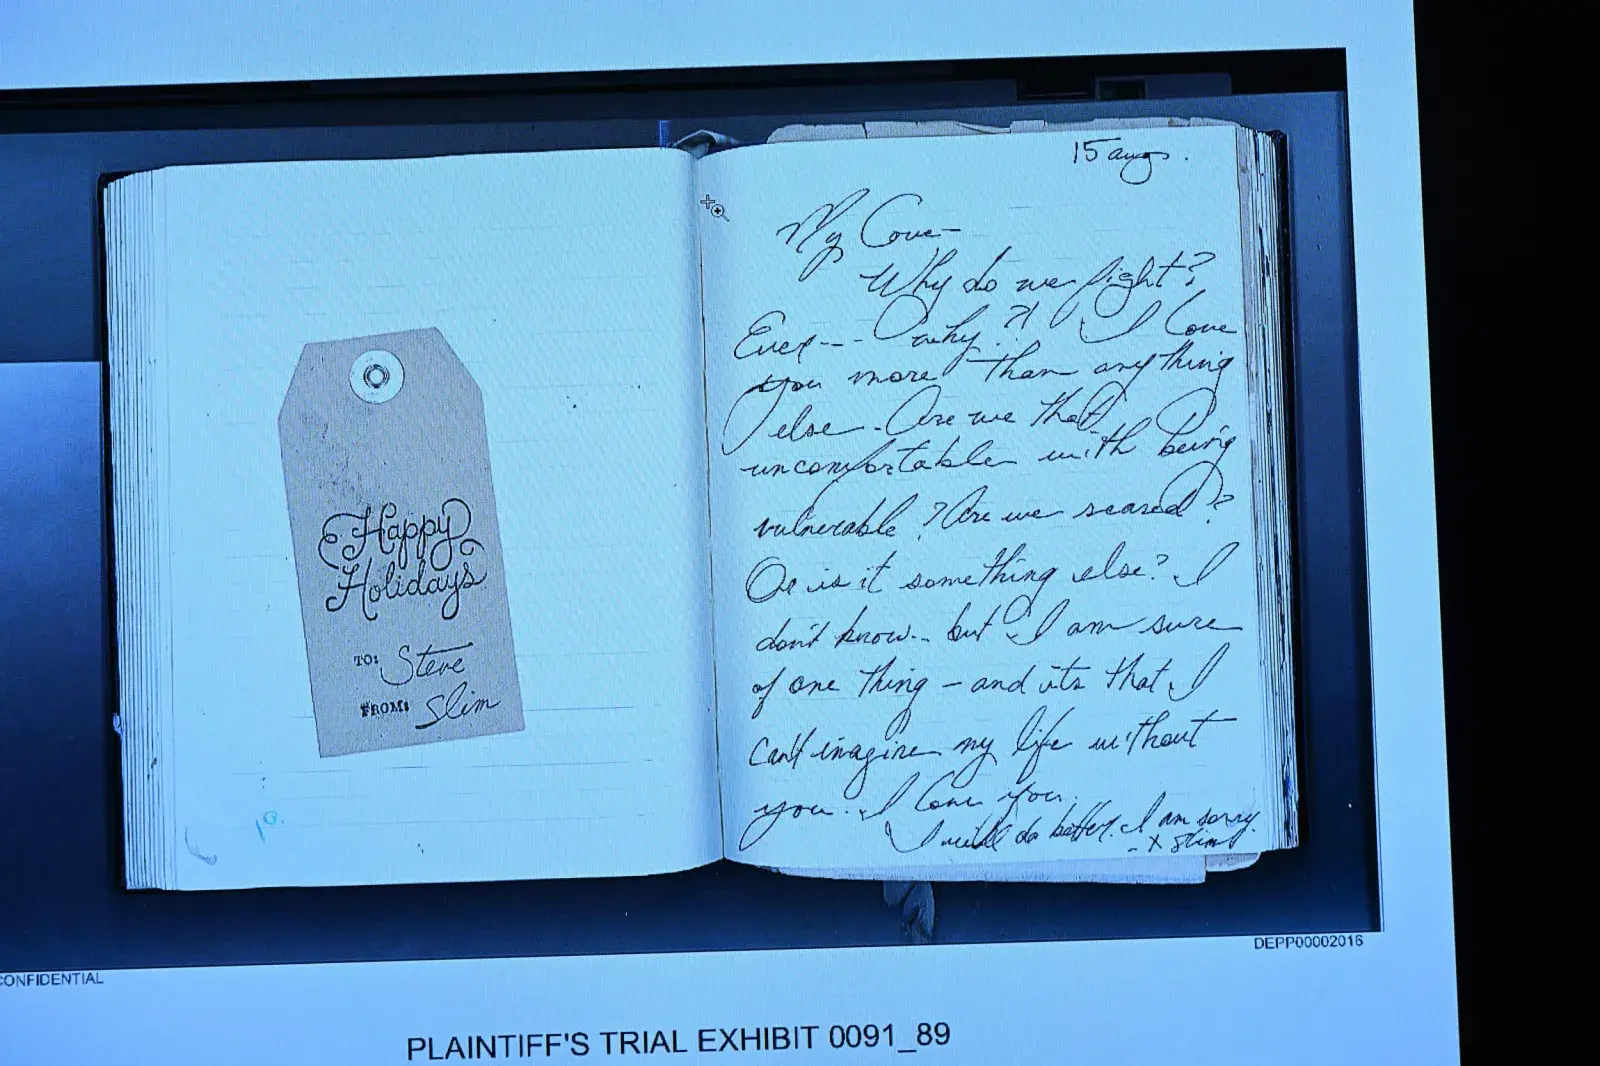 Happy
Holidays
TO: Steve
FROM: Slim
15 aug.
My Love—
Why do we fight?
Ever--- why?! I Love
you more than anything
else. Are we that
uncomfortable with being
vulnerable? Are we scared?
Or is it something else? I
don't know.. but I am sure
of one thing – and its that I
can't imagine my life without
you. I love you.
I will do better. I am sorry.
- X Slim
DEPP00002016
CONFIDENTIAL
PLAINTIFF'S TRIAL EXHIBIT 0091_89